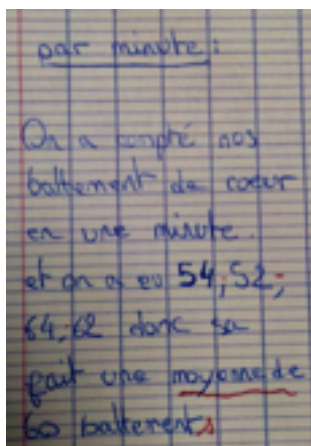 par minute :
On a compté nos
battement de coeur
en une minute.
et on a eu 54, 52,
64, 62 donc sa
fait une moyenne de
60 battements